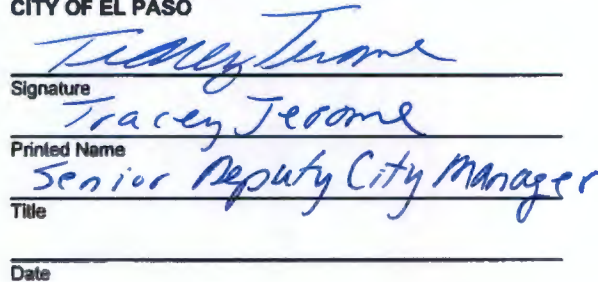 CITY OF EL PASO
Tracey Jerome
Signature
Tracey Jerome
Printed Name
Senior Deputy City Manager
Title
Date